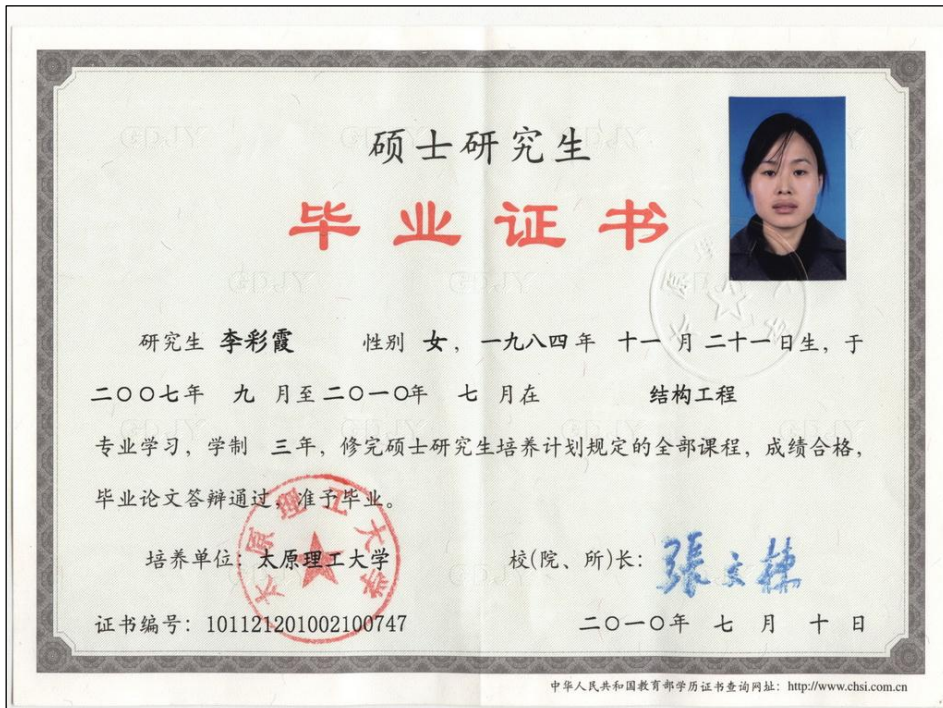 硕士研究生
毕业证书
研究生 李彩霞 性别 女，一九八四年 十一 月 二十一日生，于
二〇〇七年 九 月至二〇一〇年 七 月在 结构工程
专业学习，学制 三年，修完硕士研究生培养计划规定的全部课程，成绩合格，
毕业论文答辩通过，准予毕业。
培养单位：太原理工大学 校(院、所)长：張文棟
太原理工大学
证书编号：101121201002100747 二〇一〇年 七 月 十 日
中华人民共和国教育部学历证书查询网址：http://www.chsi.com.cn